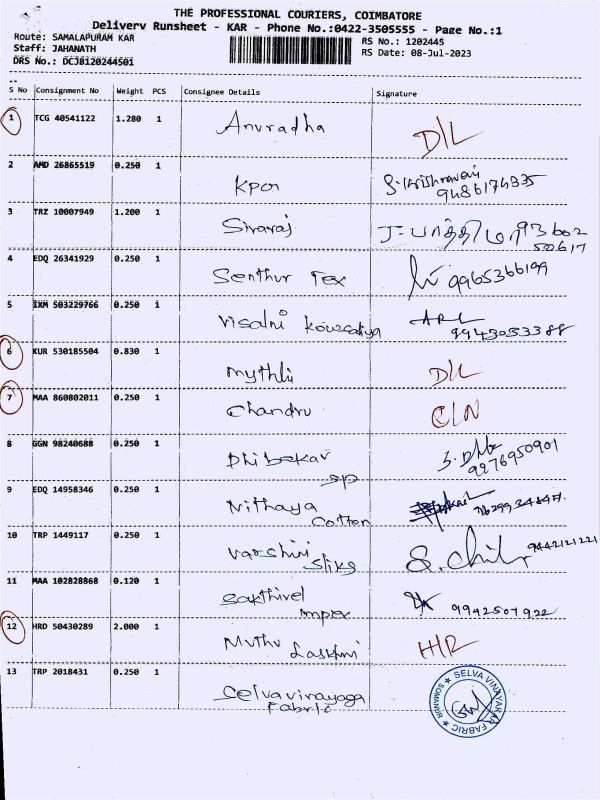 THE PROFESSIONAL COURIERS, COIMBATORE
Delivery Runsheet - KAR - Phone No.:0422-3505555 - Page No.:1
Route: SAMALAPURAM KAR
RS No.: 1202445
Staff: JAHANATH
RS Date: 08-Jul-2023
DRS No.: DCJB120244501
S No Consignment No Weight PCS Consignee Details Signature
1 TCG 40541122 1.280 1 Anuradha D/L
2 AMD 26865519 0.250 1 KPM 9486174335
3 TRZ 10007949 1.200 1 Sivaraj J. பாத்திமா 93602
50617
4 EDQ 26341929 0.250 1 Senthur Tex 9965366199
5 IXM 503229766 0.250 1 Visalni Kowsalya
9943053388
6 KUR 530185504 0.830 1 Mythli D/L
7 MAA 860802011 0.250 1 Chandru C/N
8 GGN 98240688 0.250 1 Dhibakar
sp 9276950901
9 EDQ 14958346 0.250 1 Nithaya
Cotton
10 TRP 1449117 0.250 1 Varshini
Silks 9442121221
11 MAA 102828868 0.120 1 Sakthivel
Impex 9942507922
12 HRD 50430289 2.000 1 Muthu Lasshmi H/R
13 TRP 2018431 0.250 1 Selvavinayaga
Fabric
SELVA VINAYAKAA FABRIC
SOMANUR